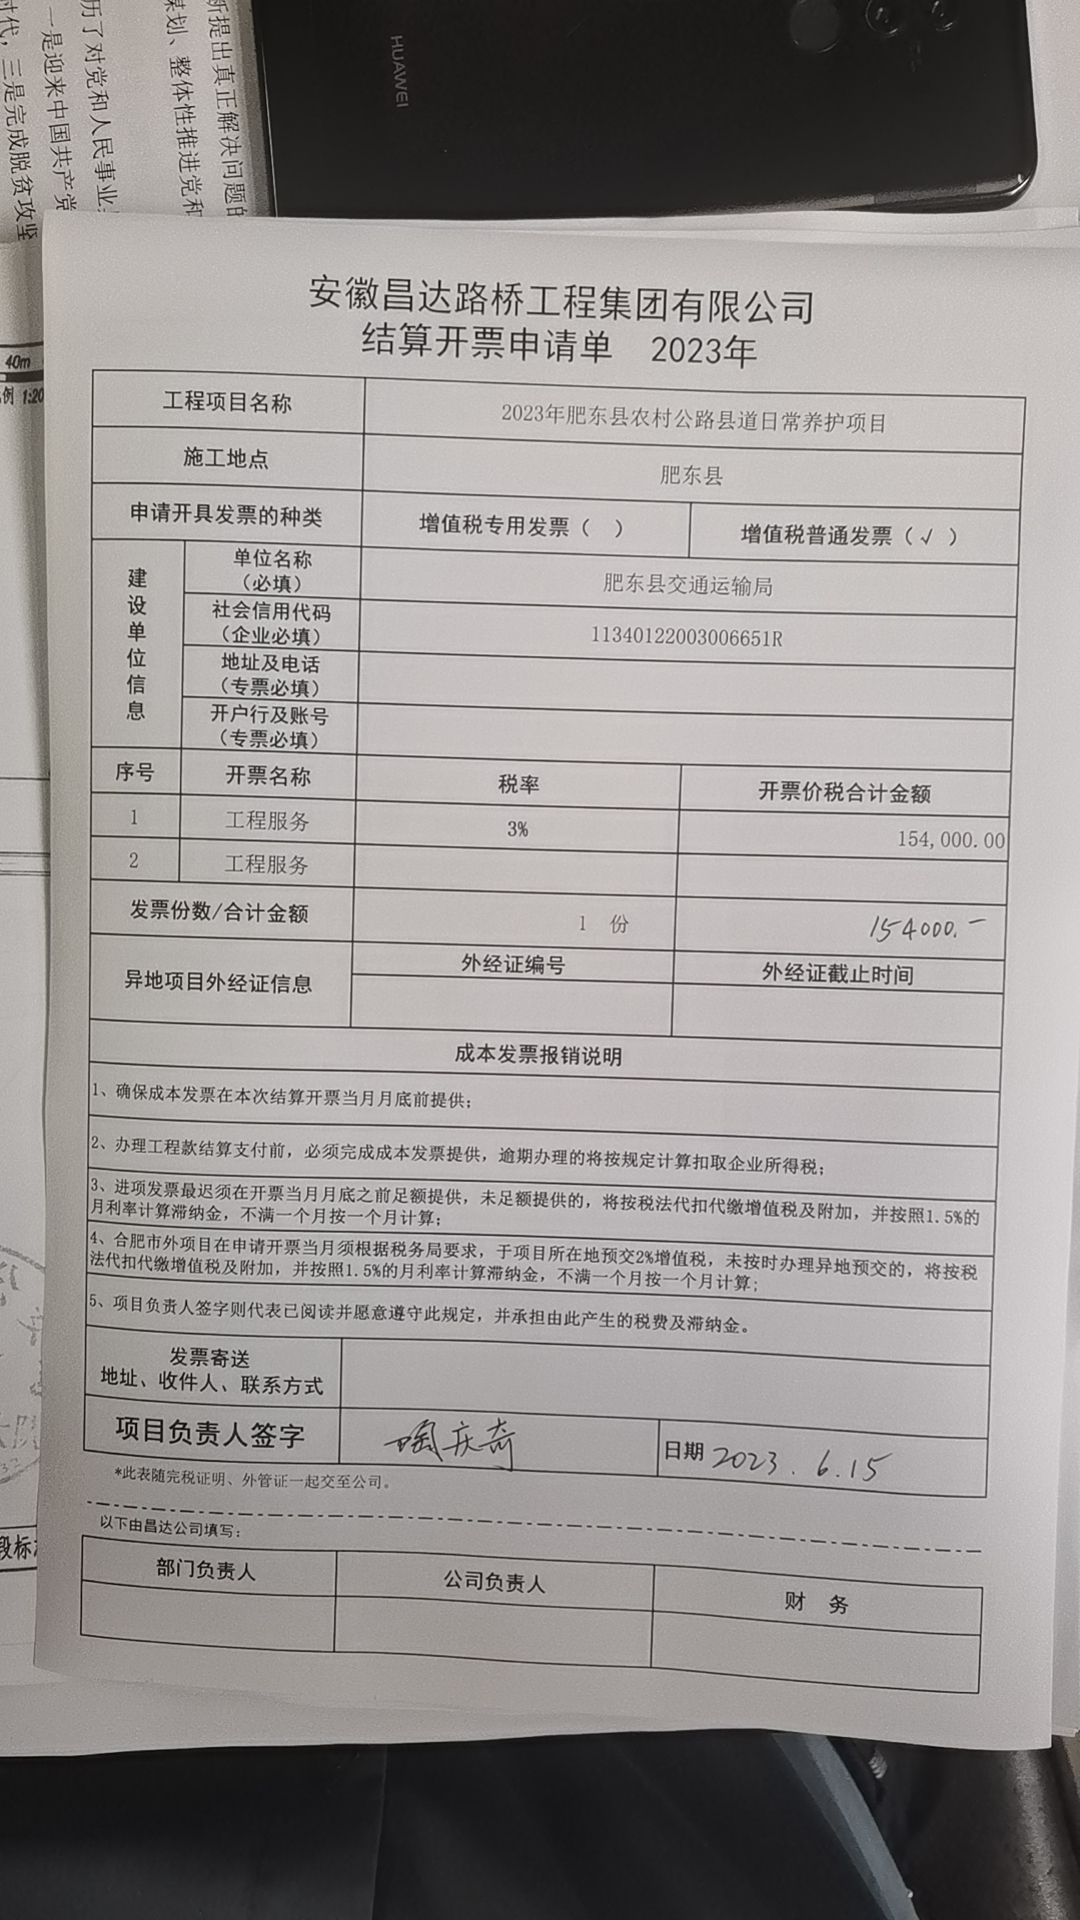 新提出真正解决问题的
谋划、整体性推进党和
历了对党和人民事业
一是迎来中国共产党
时代，三是完成脱贫攻坚
HUAWEI
40m
例 1:20
安徽昌达路桥工程集团有限公司
结算开票申请单 2023年
工程项目名称 2023年肥东县农村公路县道日常养护项目
施工地点 肥东县
申请开具发票的种类 增值税专用发票（ ） 增值税普通发票（√ ）
建设单位信息
单位名称（必填） 肥东县交通运输局
社会信用代码（企业必填） 11340122003006651R
地址及电话（专票必填）
开户行及账号（专票必填）
序号 开票名称 税率 开票价税合计金额
1 工程服务 3% 154,000.00
2 工程服务
发票份数/合计金额 1 份 154000.-
异地项目外经证信息 外经证编号 外经证截止时间
成本发票报销说明
1、确保成本发票在本次结算开票当月月底前提供；
2、办理工程款结算支付前，必须完成成本发票提供，逾期办理的将按规定计算扣取企业所得税；
3、进项发票最迟须在开票当月月底之前足额提供，未足额提供的，将按税法代扣代缴增值税及附加，并按照1.5%的
月利率计算滞纳金，不满一个月按一个月计算；
4、合肥市外项目在申请开票当月须根据税务局要求，于项目所在地预交2%增值税，未按时办理异地预交的，将按税
法代扣代缴增值税及附加，并按照1.5%的月利率计算滞纳金，不满一个月按一个月计算；
5、项目负责人签字则代表已阅读并愿意遵守此规定，并承担由此产生的税费及滞纳金。
发票寄送
地址、收件人、联系方式
项目负责人签字 陶庆奇 日期 2023.6.15
*此表随完税证明、外管证一起交至公司。
以下由昌达公司填写：
部门负责人 公司负责人 财 务
段标